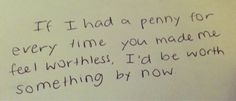 If I had a penny for
every time you made me
feel worthless, I'd be worth
something by now